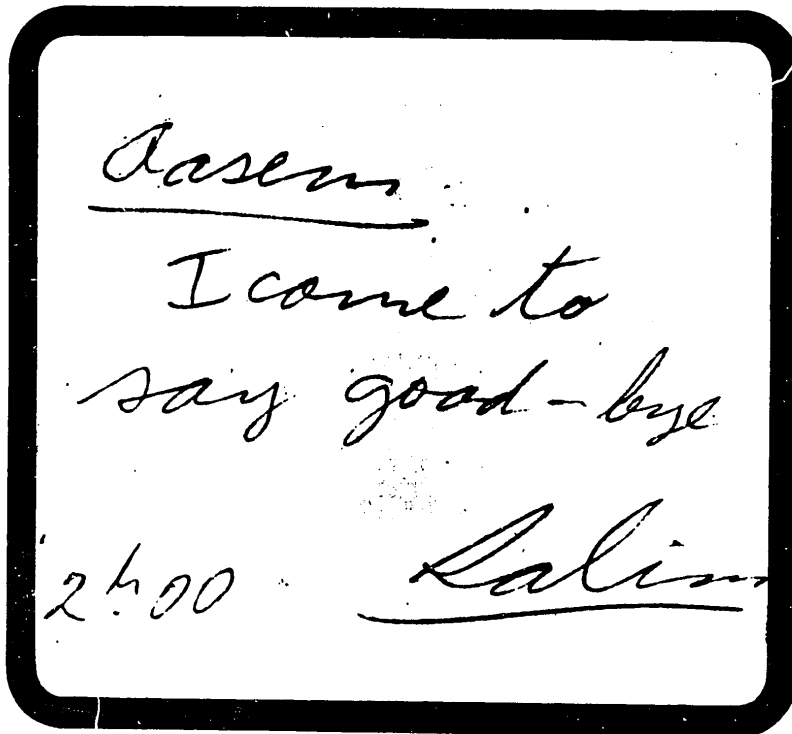 Aasem
I come to
say good-bye
2h00 Salim